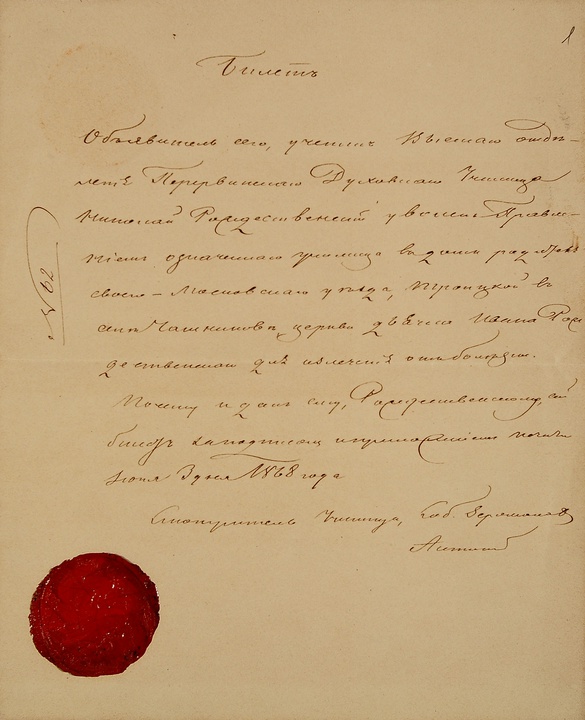 1
Билетъ
Объявитель сего, ученикъ Высшаго отдѣ-
ленія Перервинскаго Духовнаго Училища
Николай Рождественскій уволенъ Правле-
ніемъ означеннаго училища въ домъ родителя
своего – Московскаго уѣзда, Троицкой въ
селѣ Чашникове, церкви дьячка Ивана Рож
дественскаго для излеченія отъ болѣзни.
Почему и данъ ему, Рождественскому, сей
билетъ за подписомъ и приложеніемъ печати
Іюня 3 дня 1868 года
Смотритель Училища, Соб. Іеромонахъ
№ 62